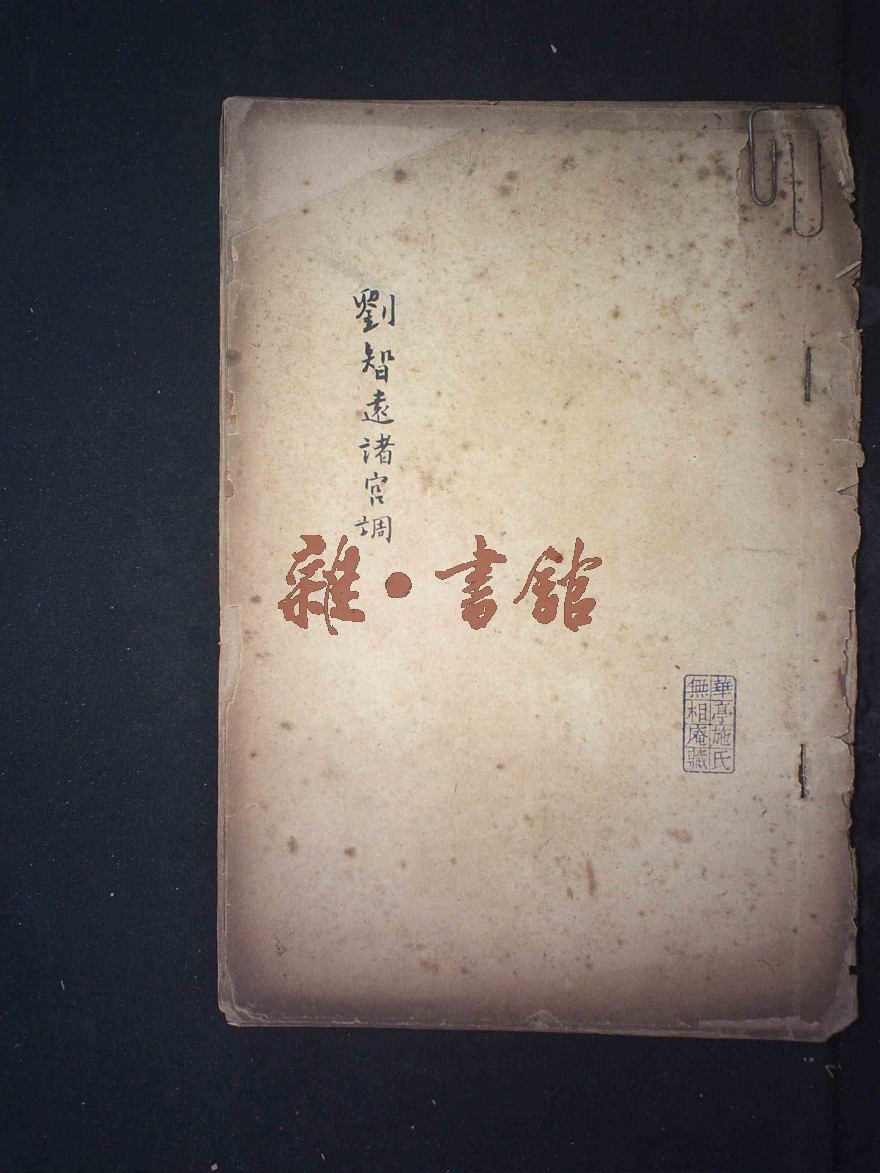 劉智遠諸宮調
雜·書館
華亭施氏
無相庵藏